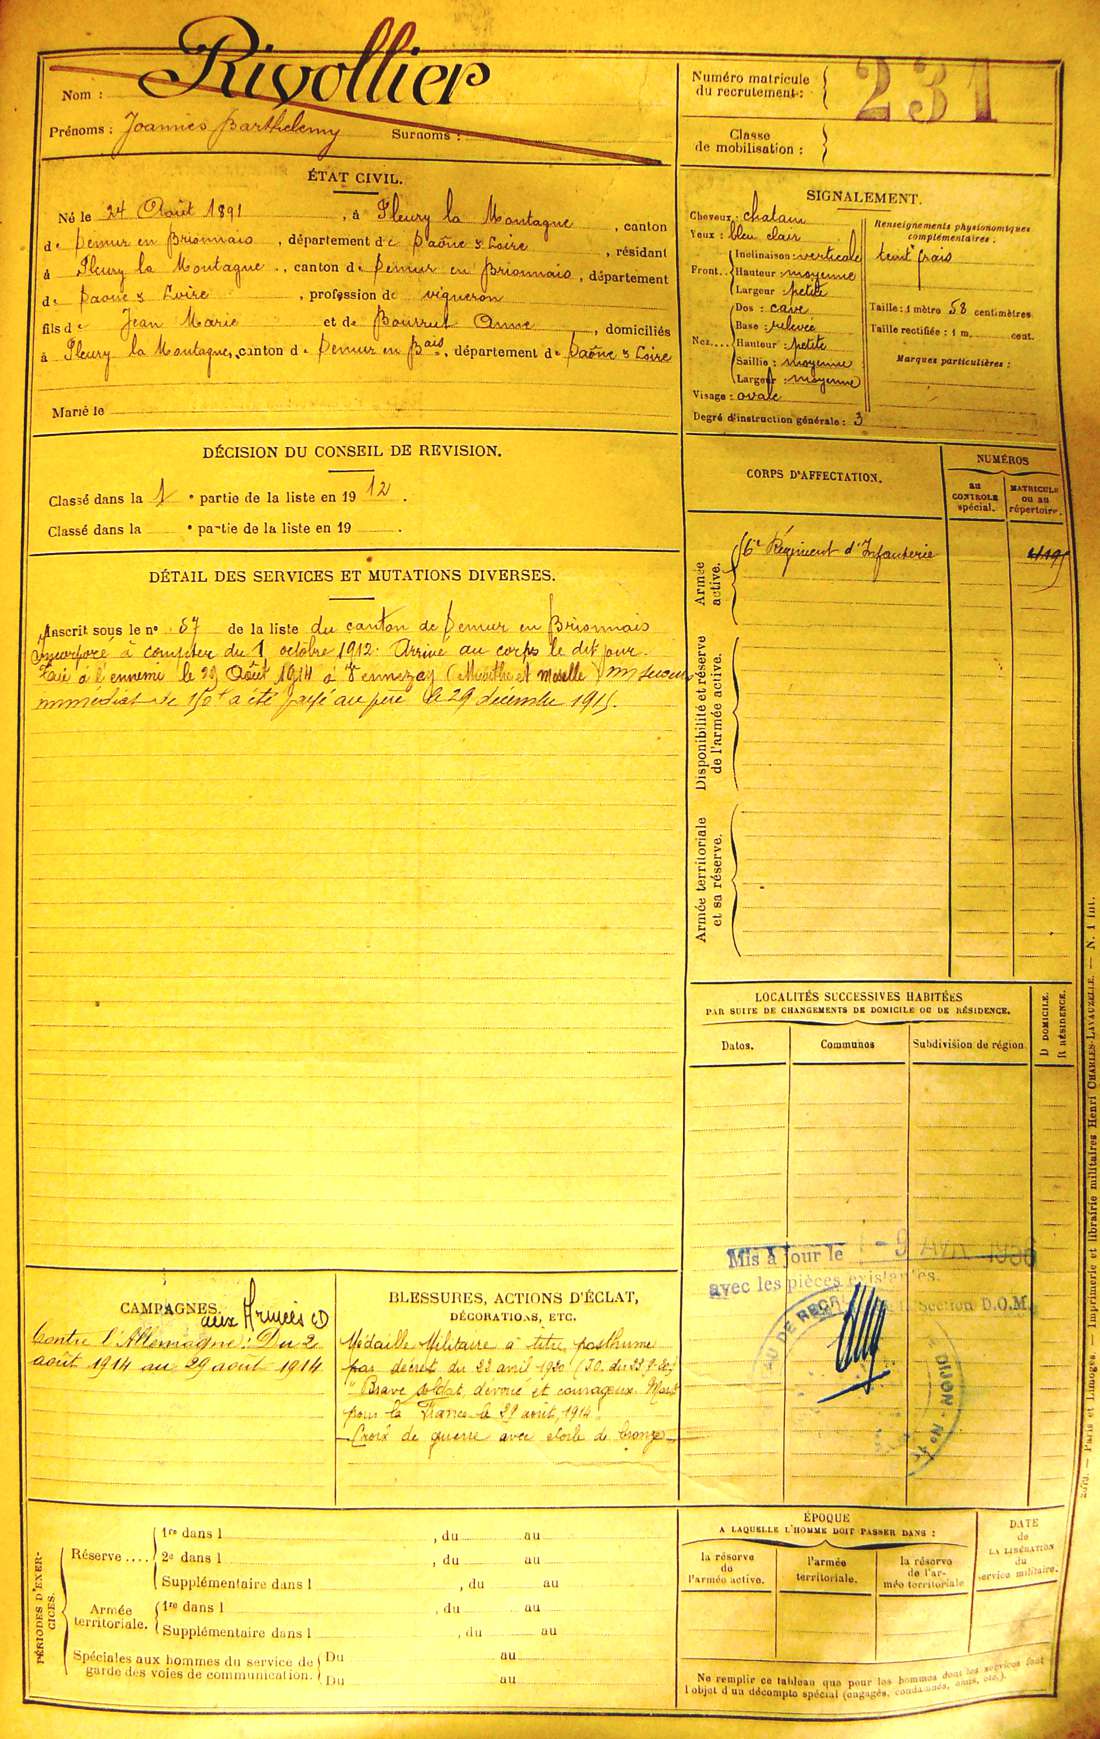 Nom : Rivollier
Prénoms : Joannès Barthélemy Surnoms :
Numéro matricule
du recrutement : 231
Classe
de mobilisation :
ÉTAT CIVIL.
Né le 24 Août 1891, à Fleury la Montagne, canton
de Semur en Brionnais, département de Saône & Loire, résidant
à Fleury la Montagne, canton de Semur en Brionnais, département
de Saône & Loire, profession de vigneron
fils de Jean Marie et de Bourrut Anne, domiciliés
à Fleury la Montagne, canton de Semur en Bais, département de Saône & Loire
Marié le
SIGNALEMENT.
Cheveux : chatain
Yeux : bleu clair
Front Inclinaison : verticale
Hauteur : moyenne
Largeur : petite
Nez Dos : cave
Base : relevée
Hauteur : petite
Saillie : moyenne
Largeur : moyenne
Visage : ovale
Degré d'instruction générale : 3
Renseignements physionomiques
complémentaires :
teint frais
Taille : 1 mètre 58 centimètres
Taille rectifiée : 1 m. cent.
Marques particulières :
DÉCISION DU CONSEIL DE REVISION.
Classé dans la 1 e partie de la liste en 1912.
Classé dans la e partie de la liste en 19 .
DÉTAIL DES SERVICES ET MUTATIONS DIVERSES.
Inscrit sous le no 57 de la liste du canton de Semur en Brionnais
Incorporé à compter du 1 octobre 1912. Arrivé au corps le dit jour.
Tué à l'ennemi le 29 Août 1914 à Vennezey (Meurthe et Moselle) un secours
immédiat de 150f a été payé au père le 29 décembre 1915.
CORPS D'AFFECTATION.
NUMÉROS
au
CONTROLE
spécial.
MATRICULE
ou au
répertoire.
Armée
active.
16e Régiment d'Infanterie
Disponibilité et réserve
de l'armée active.
Armée territoriale
et sa réserve.
LOCALITÉS SUCCESSIVES HABITÉES
PAR SUITE DE CHANGEMENTS DE DOMICILE OU DE RÉSIDENCE.
Dates.
Communes
Subdivision de région
D DOMICILE.
R RÉSIDENCE.
Mis à jour le - 9 AVR
avec les pièces existantes.
Section D.O.M.
DIJON
CAMPAGNES.
aux Armées CD
Contre l'Allemagne : Du 2
août 1914 au 29 août 1914
BLESSURES, ACTIONS D'ÉCLAT,
DÉCORATIONS, ETC.
Médaille Militaire à titre posthume
par décret du 22 avril 1920 (J.O. du
" Brave soldat, dévoué et courageux. Mort
pour la France le 29 août 1914.
Croix de guerre avec étoile de bronze
PÉRIODES D'EXER-
CICES.
Réserve ....
1re dans l , du au
2e dans l , du au
Supplémentaire dans l , du au
Armée
territoriale.
1re dans l , du au
Supplémentaire dans l , du au
Spéciales aux hommes du service de
garde des voies de communication.
Du au
Du au
ÉPOQUE
A LAQUELLE L'HOMME DOIT PASSER DANS :
la réserve
de
l'armée active.
l'armée
territoriale.
la réserve
de l'ar-
mée territoriale
DATE
de
LA LIBÉRATION
du
service militaire.
Ne remplir ce tableau que pour les hommes dont les services font
l'objet d'un décompte spécial (engagés, condamnés, omis, etc.).
Paris et Limoges. — Imprimerie et librairie militaires Henri CHARLES-LAVAUZELLE. — N. 1 int.